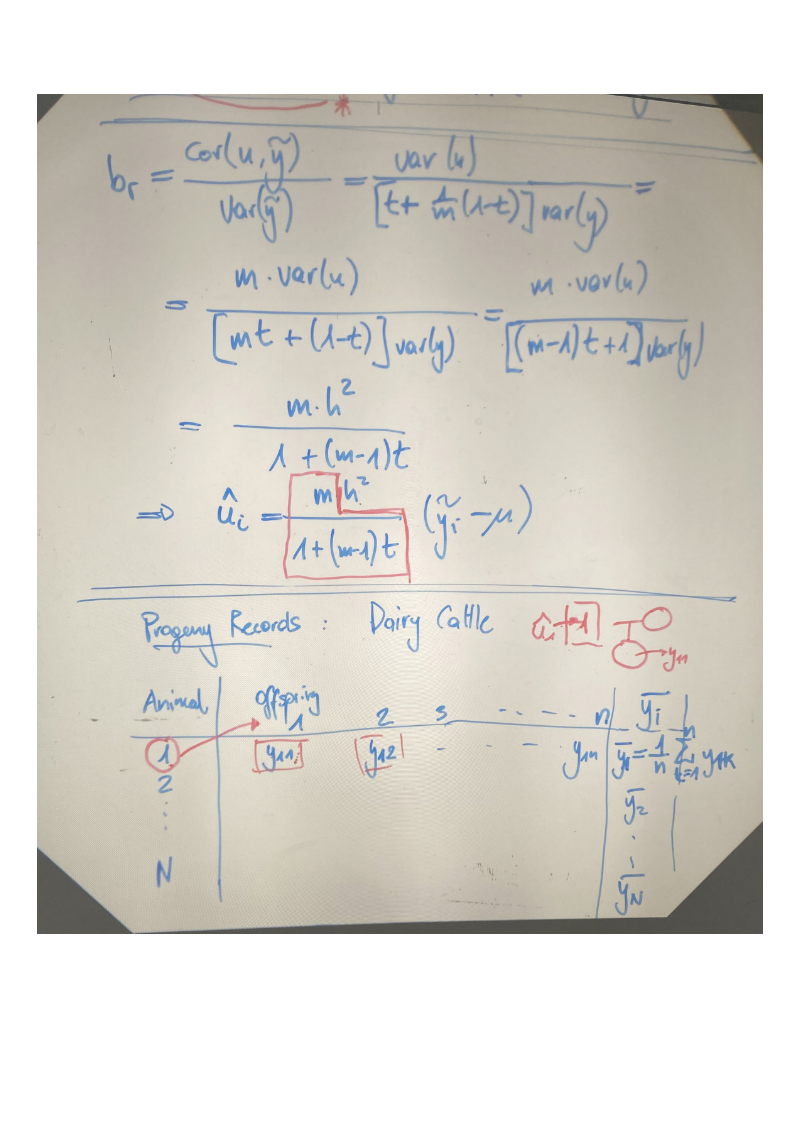 b_r = cov(u, ỹ) / var(ỹ) = var(u) / [t + 1/m (1-t)] var(y) =
= m · var(u) / [mt + (1-t)] var(y) = m · var(u) / [(m-1)t + 1] var(y)
= m·h² / 1 + (m-1)t
⇒ û_i = m h² / 1 + (m-1)t (ỹ_i - μ)
Progeny Records : Dairy Cattle û₁ → 1 → y₁₁
Animal Offspring ȳ_i
1 2 3 · · · - - - n
1 y₁₁ y₁₂ - - - - y₁ₙ ȳ₁ = 1/n Σ_{k=1}^{n} y₁ₖ
2 ȳ₂
⋮ ⋮
N ȳ_N